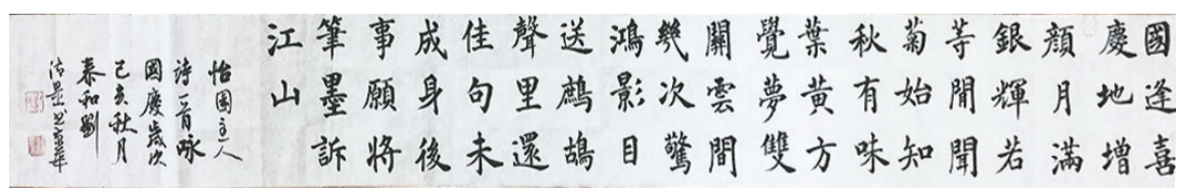 國逢喜
慶地增
顏月滿
銀輝若
等閒聞
菊始知
秋有味
葉黃方
覺夢雙
關雲間
幾次驚
鴻影目
送鷓鴣
聲里還
佳句未
成身後
事願將
筆墨訴
江山
怡園主人
詩一首咏
國慶歲次
己亥秋月
泰和劉
清量書京華